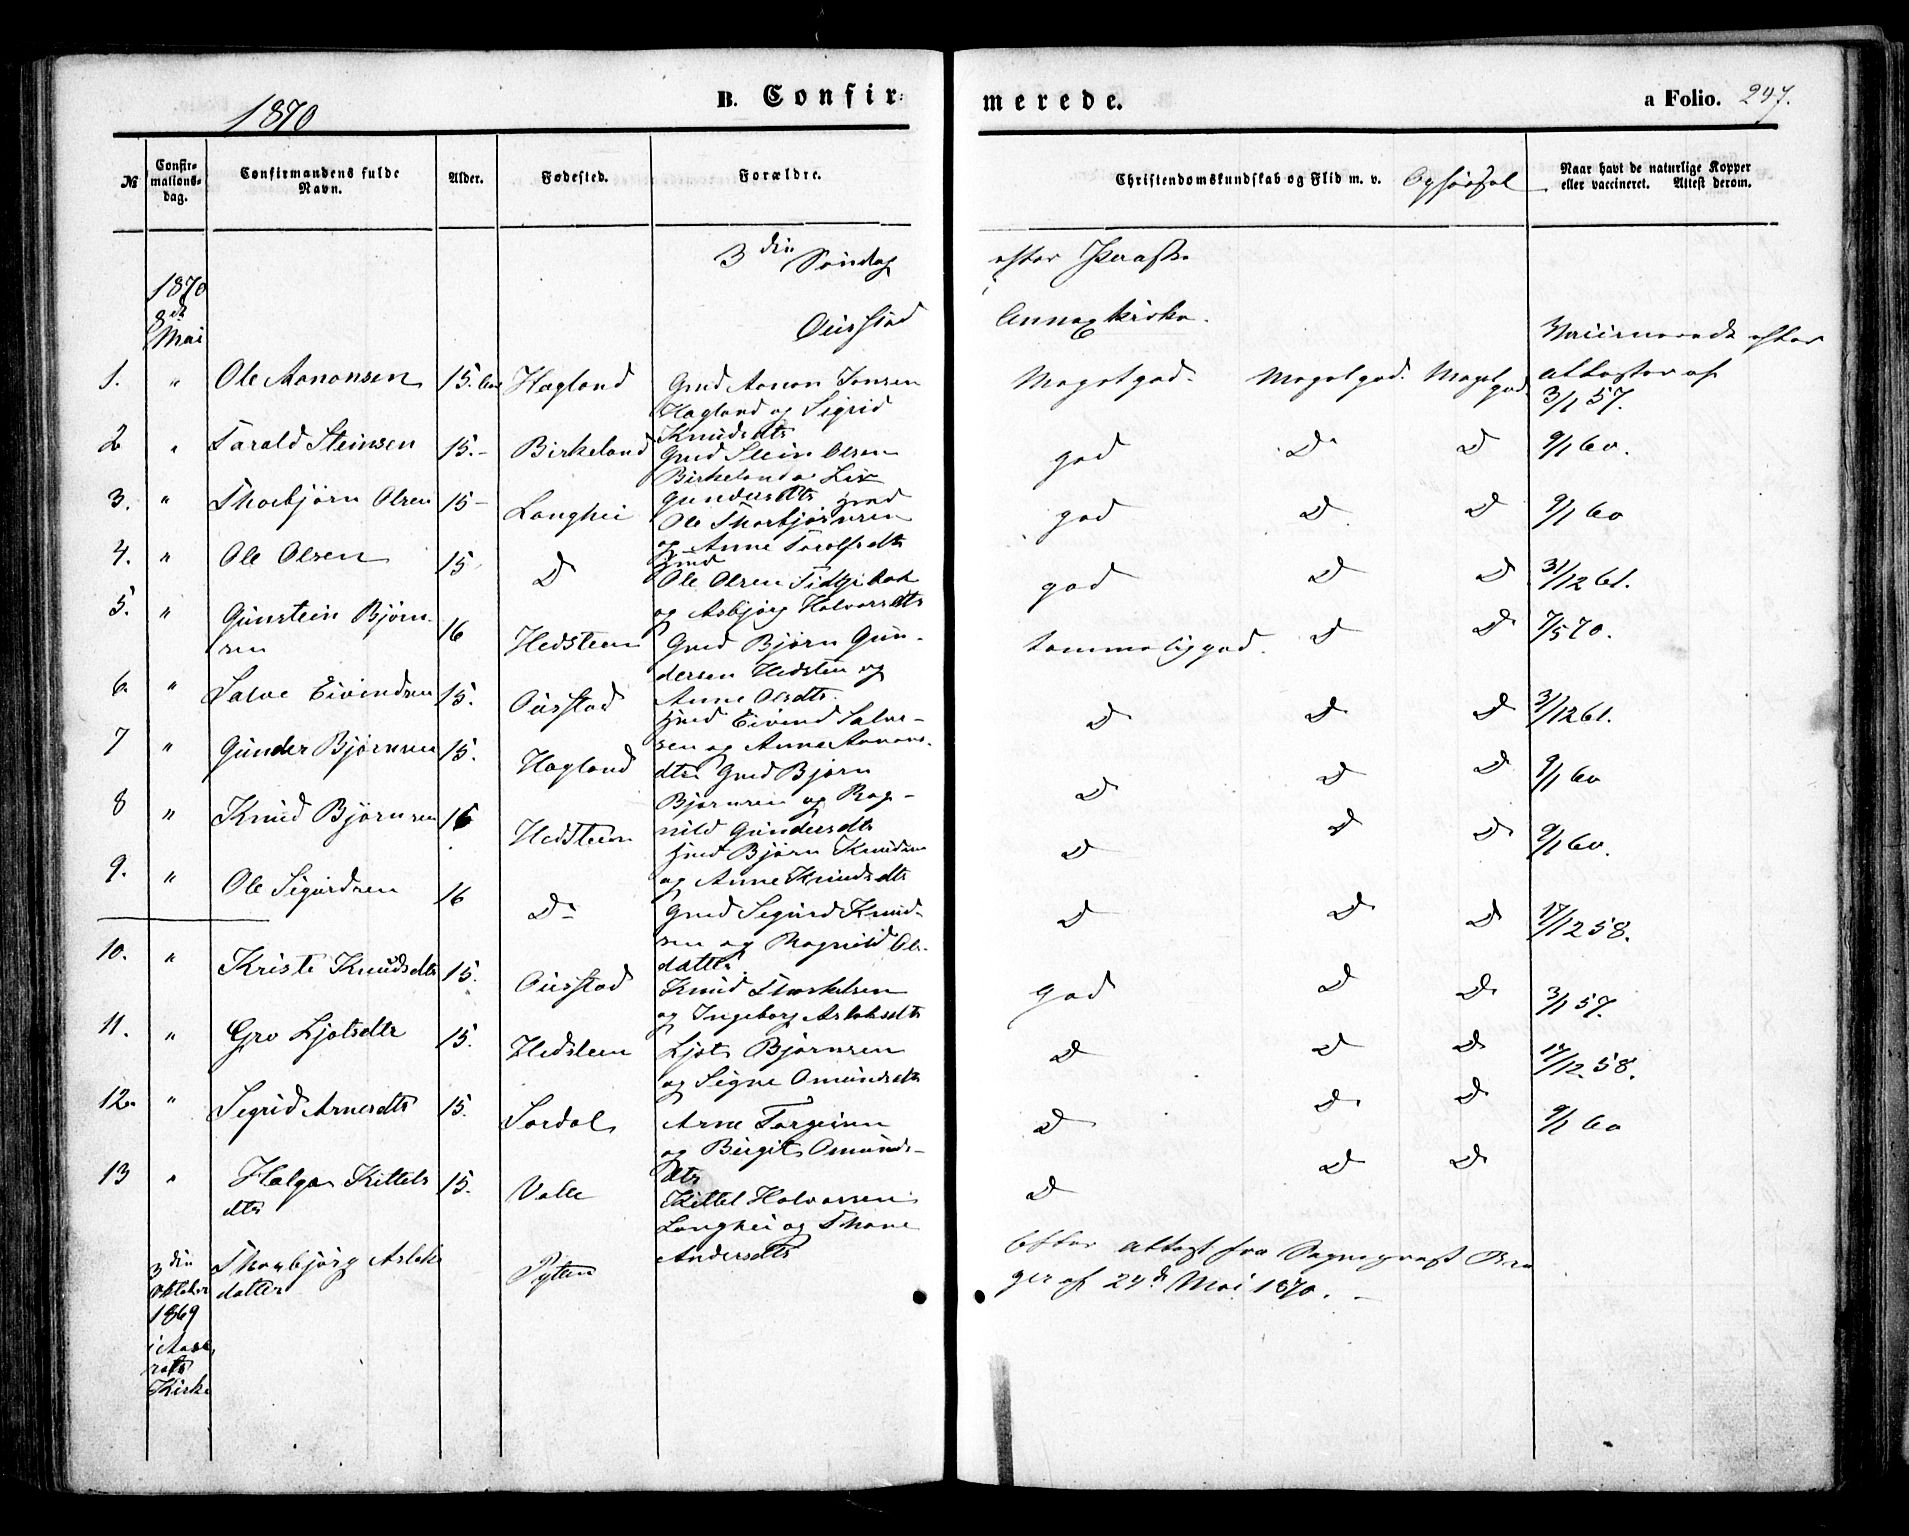 1870
B. Confir-
merede.
a Folio. 247.
№
Confir-
mations-
dag.
Confirmandens fulde
Navn.
Alder.
Fødested.
Forældre.
Christendomskundskab og Flid m. v. Opførsel
Naar havt de naturlige Kopper
eller vaccineret. Attest derom.
3 die Søndag
efter Paaske
1870
8de
Mai
Ousstad
Annexkirke.
Vaccinerede efter
attester af
1. " Ole Aanonsen 15. Hagland Gmd Aanon Jonsen
Hagland og Sigrid
Knudsdtr
Meget god. Meget god. Meget god. 3/1 57.
2 " Tarald Steinsen 15.- Birkeland Gmd Stein Olsen
Birkeland o Liv
Gundersdtr
god D D 9/1 60.
3. " Thorbjørn Olsen 15- Langhei Hmd
Ole Thorbjørnsen
og Anne Torolfsdtr
god D D 9/1 60
4. " Ole Olsen 15 D Hmd
Ole Olsen
og Asbjørg Halvorsdtr
god D D 31/12 61.
5. " Gunstein Bjørn-
sen 16 Hedsteen Gmd Bjørn Gun-
dersen Hedsten og
Anne Olsdtr.
temmelig god. D D 7/5 70.
6. " Salve Eivendsen 15. Ousstad Hmd Eivend Salve-
sen og Anne Aanons-
dtr
D D D 31/12 61.
7 " Gunder Bjørnsen 15. Hagland Gmd Bjørn
Bjørnsen og Rag-
nild Gundersdtr
D D D 9/1 60
8 " Knud Bjørnsen 16 Hedsteen Hmd Bjørn Knudsen
og Anne Knudsdtr
D D D 9/1 60.
9. " Ole Sigurdsen 16 D Gmd Sigurd Knud-
sen og Ragnild Ols-
datter
D D D 17/12 58.
10. " Kristi Knudsdtr 15. Ousstad Knud Thorkelsen
og Ingeborg Aslaksdtr
god D D 3/1 57.
11. " Gro Ljotsdtr 15. Hedsteen Ljot Bjørnsen
og Signe Omundsdtr
D D D 17/12 58.
12. " Sigrid Arnesdtr 15. Sordal Arne Torgeirsen
og Birgit Omunds-
dtr
D D D 9/1 60
13 " Helga Kittels
dtr 15. Valle Kittel Halvorsen
Langhei og Thone
Andersdtr
D D D
3 die
Oktober
1869
i Aase
rals
Kirke
Thorbjørg Aslaks
datter
Pytten
Efter attest fra Sogneprest
af 24de Mai 1870.